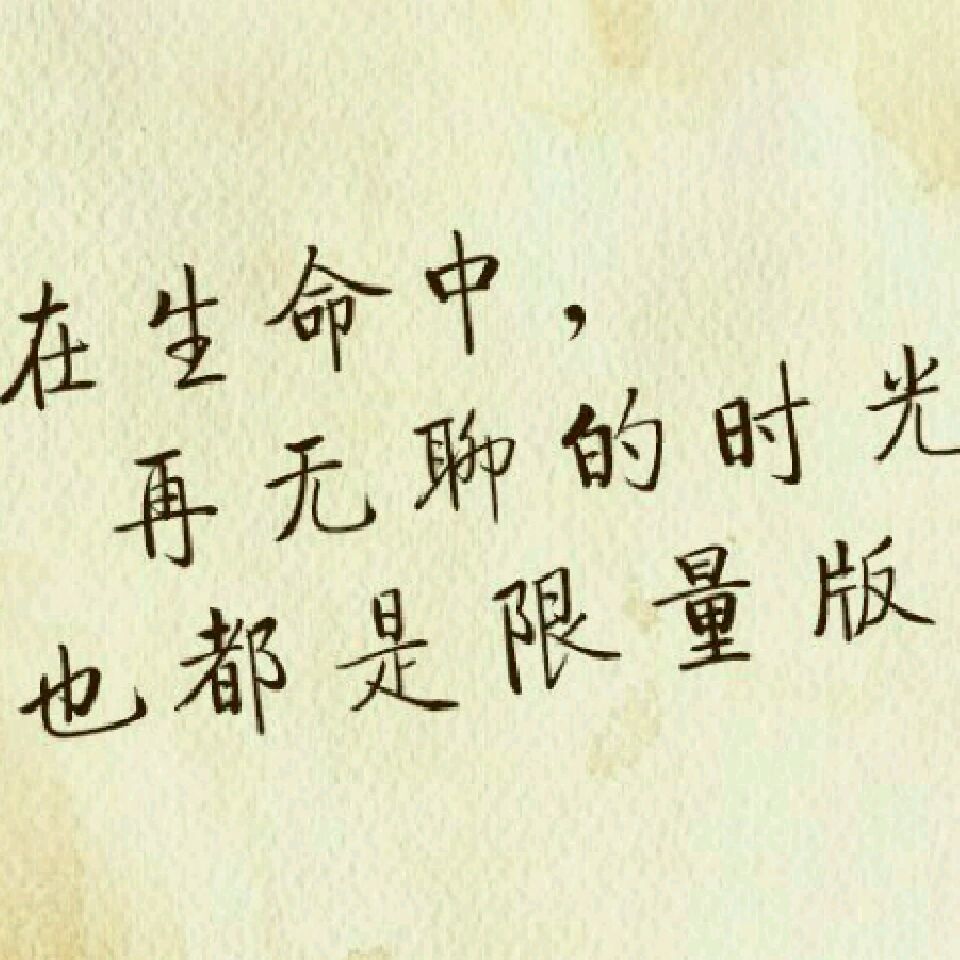 在生命中,
再无聊的时光
也都是限量版